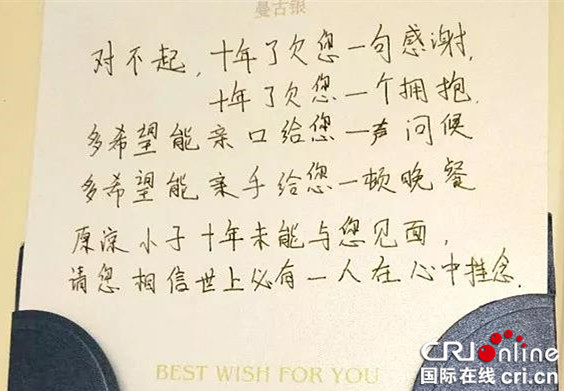 曼古银
对不起,十年了欠您一句感谢,
十年了欠您一个拥抱.
多希望能亲口给您一声问候
多希望能亲手给您一顿晚餐
原谅小子十年未能与您见面,
请您相信世上必有一人在心中挂念.
BEST WISH FOR YOU
CRIonline
国际在线 cri.cn